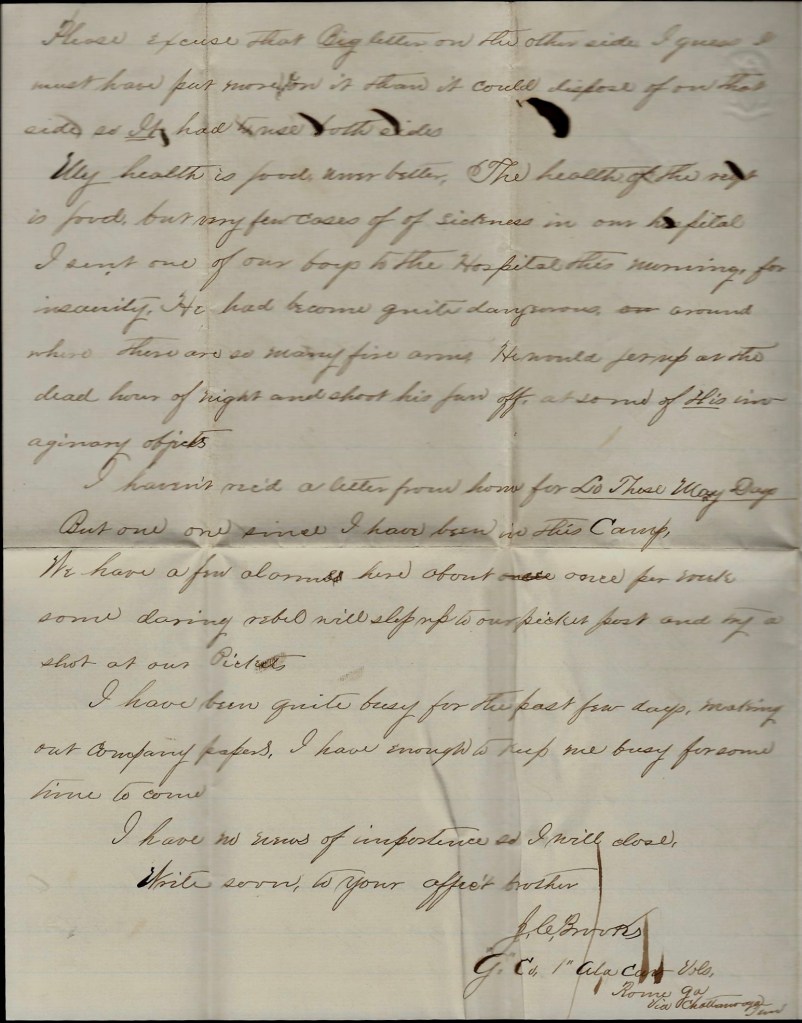 Please excuse that Big letter on the other side I guess I
must have put more on it than it could dispose of on that
side so It had to use both sides
My health is good, never better, The health of the regt
is good, but very few cases of of sickness in our hospital
I sent one of our boys to the Hospital this morning, for
insanity, He had become quite dangerous, around
where there are so many fire arms, He would jerup at the
dead hour of night and shoot his gun off, at some of His im
aginary objects
I haven't rec'd a letter from home for Lo These May Days
But one one since I have been in this Camp,
We have a few alarms here about once per week
some daring rebel will slip up to our picket post and try a
shot at our Pickets
I have been quite busy for the past few days, making
out company papers, I have enough to keep me busy for some
time to come
I have no news of importence so I will close,
Write soon, to your affec't brother
J. C. Brooks
"G" Co, 1" Ala Cav Vols,
Rome Ga
via Chattanooga Tenn